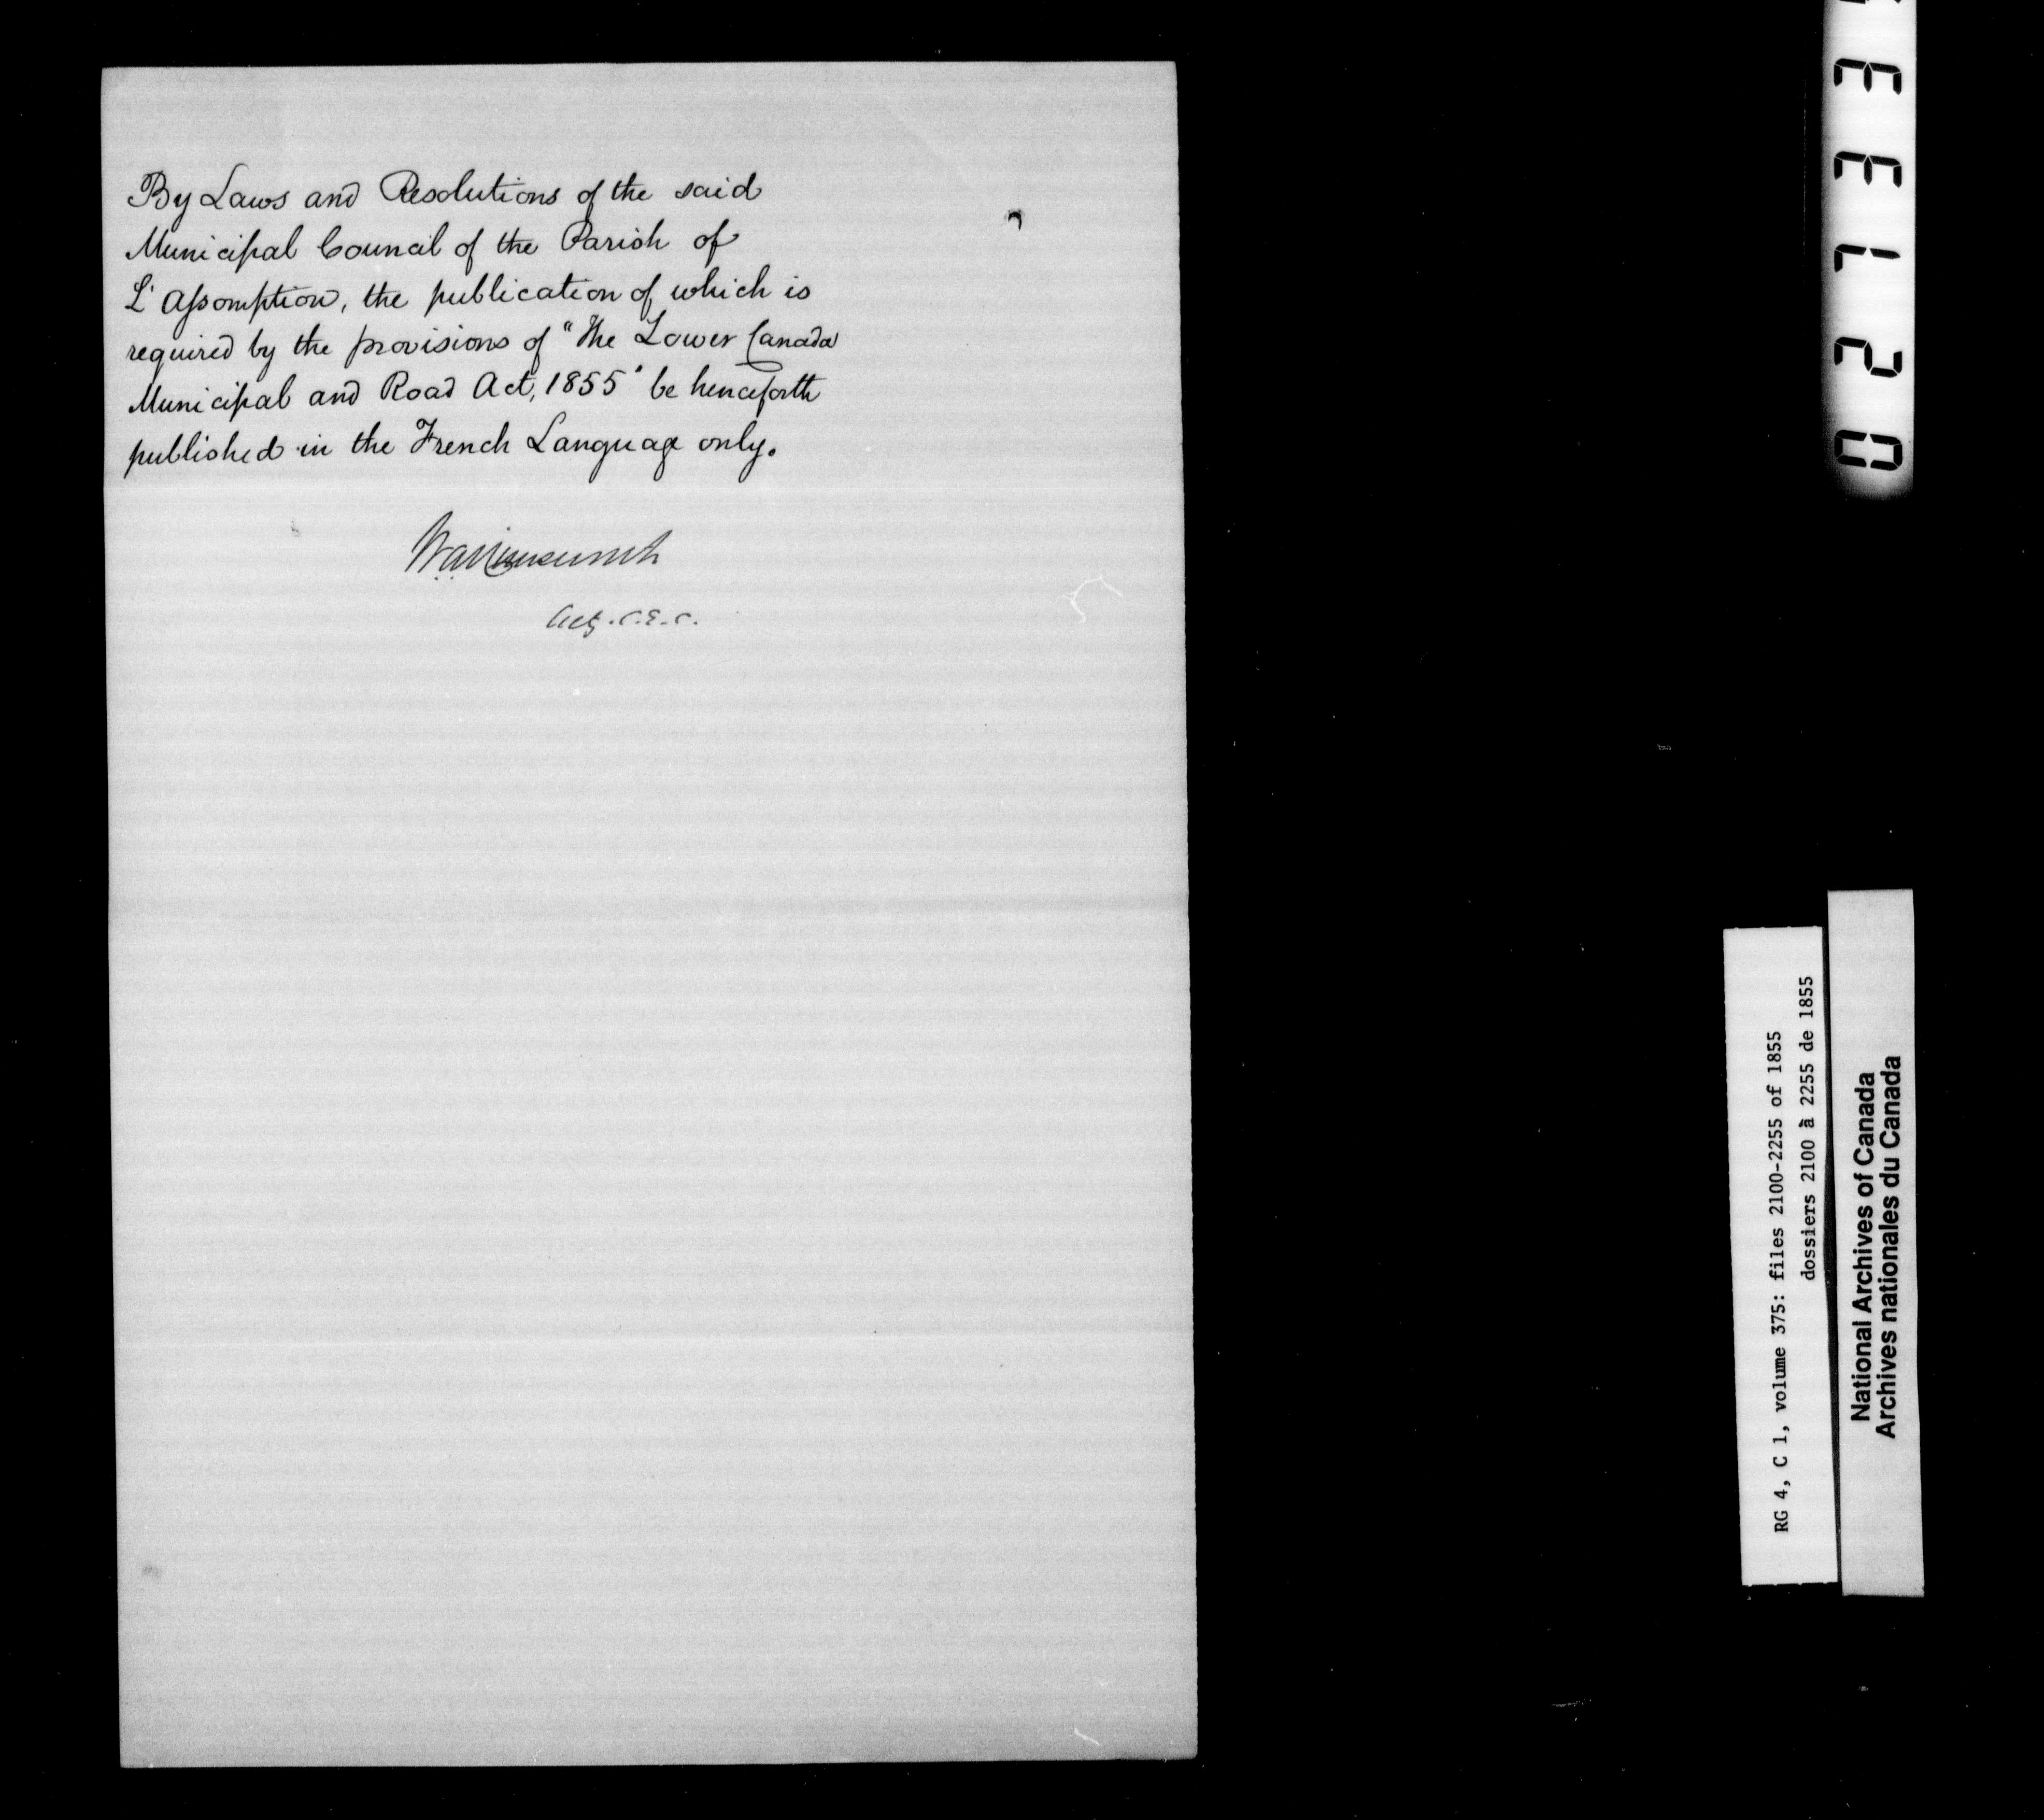 By Laws and Resolutions of the said
Municipal Council of the Parish of
L'Assomption, the publication of which is
required by the provisions of "The Lower Canada
Municipal and Road Act, 1855" be henceforth
published in the French Language only.
Actg. C.E.C.
RG 4, C 1, volume 375: files 2100-2255 of 1855
dossiers 2100 à 2255 de 1855
National Archives of Canada
Archives nationales du Canada